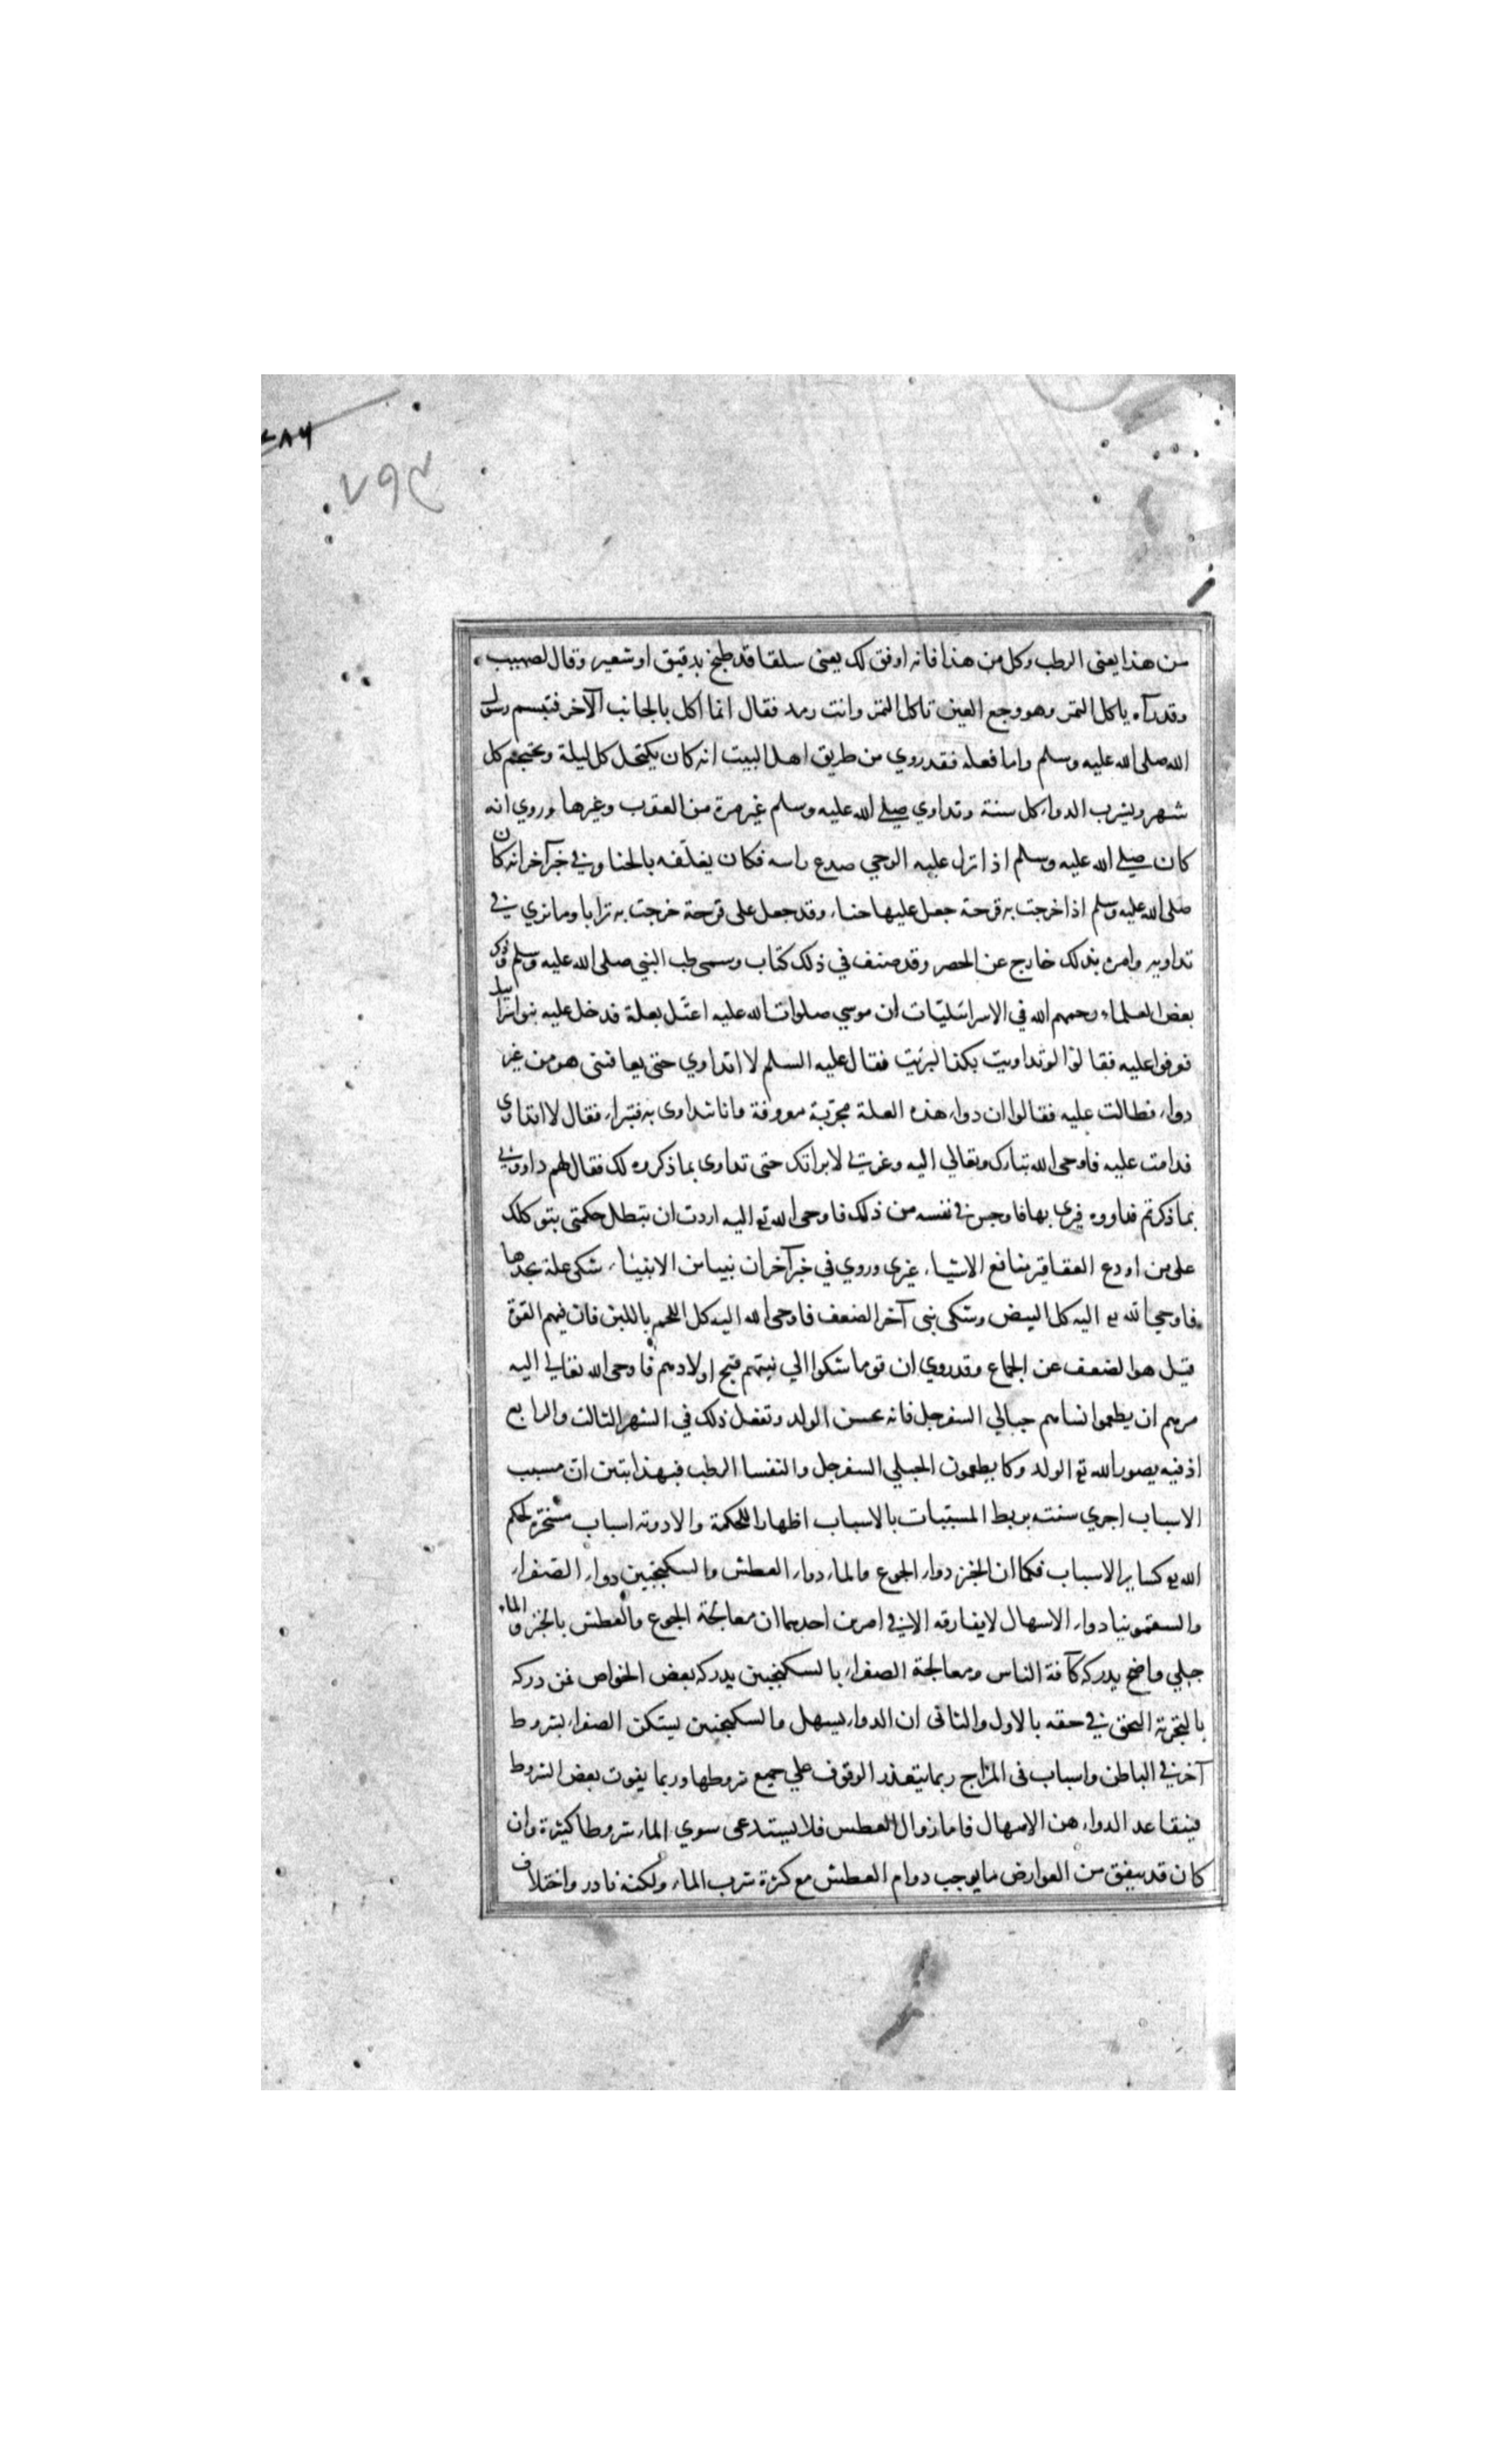 ٧٨٦
٧٦٩
من هذا يعنى الرطب وكل من هذا فانه اوفق لك يعنى سلقا قد طبخ بدقيق او شعير وقال لصهيب
وقد رآه ياكل التمر وهو وجع العين تاكل التمر وانت رمد فقال انما آكل بالجانب الآخر فتبسم رسول
الله صلى الله عليه وسلم واما فعله فقد روي من طريق اهل البيت انه كان يكتحل كل ليلة ويحتجم كل
شهر ويشرب الدواء كل سنة وتداوي صلى الله عليه وسلم غير مرة من العقرب وغيرها وروي انه
كان صلى الله عليه وسلم اذا نزل عليه الوحي صدع راسه فكان يغلّفه بالحنا وفي خبر آخر انه كان
صلى الله عليه وسلم اذا خرجت به قرحة جعل عليها حناء وقد جعل على قرحة خرجت به ترابا وما نري في
تداويه وامره بذلك خارج عن الحصر وقد صنف في ذلك كتاب وسمى طب النبي صلى الله عليه وسلم وذكر
بعض العلماء رحمهم الله في الاسرائليّات ان موسي صلوات الله عليه اعتّل بعلة فدخل عليه بنو اسرائيل
فعرفوا عليه فقالوا لو تداويت بكذا لبرئت فقال عليه السلم لا اتداوي حتى يعافنى هو من غير
دواء فطالت عليه فقالوا ان دواء هذه العلة مجرّبة معروفة وانا نتداوى به فنبراء فقال لا اتداوى
فدامت عليه فاوحى الله تبارك وتعالي اليه وعزتي لا براتك حتى تداوى بما ذكروه لك فقال لهم داووني
بما ذكرتم فداووه فبرى بها فاوجس في نفسه من ذلك فاوحى الله تع اليه اردت ان تبطل حكمتى بتوكلك
على من اودع العقاقير منافع الاشياء غيرى وروي في خبر آخر ان نبيا من الانبيناء شكى علة يجدها
فاوحي الله تع اليه كل البيض وشكى نبى آخر الضعف فاوحى الله اليه كل اللحم باللبن فان فيهم القوة
قيل هو الضعف عن الجماع وقد روي ان قوما شكوا الي نبيهم قبح اولادهم فاوحى الله تعالي اليه
مرهم ان يطعموا نساهم حبالي السفرجل فانه يحسن الولد وتفعل ذلك في الشهر الثالث والرابع
اذ فيه يصور الله تع الولد وكانوا يطعمون الحبلي السفرجل والنفسا الرطب فبهذا تبين ان مسبب
الاسباب اجري سنته بربط المسبّبات بالاسباب اظهارا للحكمة والادوية اسباب مسّخرة لحكم
الله تع كساير الاسباب فكما ان الخبز دواء الجوع والماء دواء العطش والسكنجبين دواء الصفراء
والسقمونيا دواء الاسهال لا يفارقه الا في امرين احدهما ان معالجة الجوع والعطش بالخبز والماء
جلي واضح يدركه كآفة الناس ومعالجة الصفراء بالسكنجبين يدركه بعض الخواص فمن دركه
بالتجربة التحق في حقه بالاول والثانى ان الدواء يسهل والسكنجبين يسكن الصفراء بشروط
آخر في الباطن واسباب فى المزاج ربما يتعذر الوقوف علي جميع شروطها وربما يفوت بعض الشروط
فيتقاعد الدواء عن الاسهال فاما زوال العطس فلا يستدعى سوي الماء شروطا كثيرة وان
كان قد يتفق من العوارض ما يوجب دوام العطش مع كثرة شرب الماء ولكنه نادر واختلاف